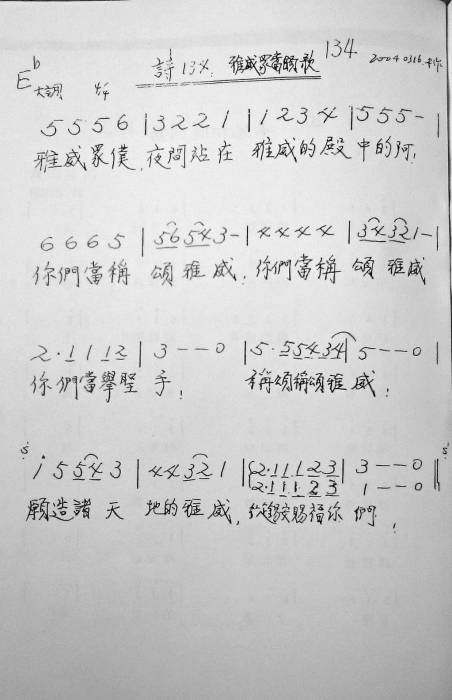 E♭大調 4/4 詩134：雅威眾當職歌 134 20040316.
5 5 5 6 | 3 2 2 1 | 1 2 3 4 | 5 5 5 - |
雅威眾僕,夜間站在 雅威的殿中的阿!
6 6 6 5 | 5 6 5 4 3 - | 4 4 4 4 | 3 4 3 2 1 - |
你們當稱 頌雅威,你們當稱 頌雅威
2 · 1 1 1 2 | 3 - - 0 | 5 · 5 5 4 3 4 | 5 - - 0 |
你們當舉聖 手! 稱頌稱頌雅威!
1 5 5 4 3 | 4 4 3 2 1 | 2 · 1 1 1 2 3 | 3 - - 0 ||
2 · 1 1 1 2 3 | 1 - - 0
願造諸天 地的雅威, 賜福你們!